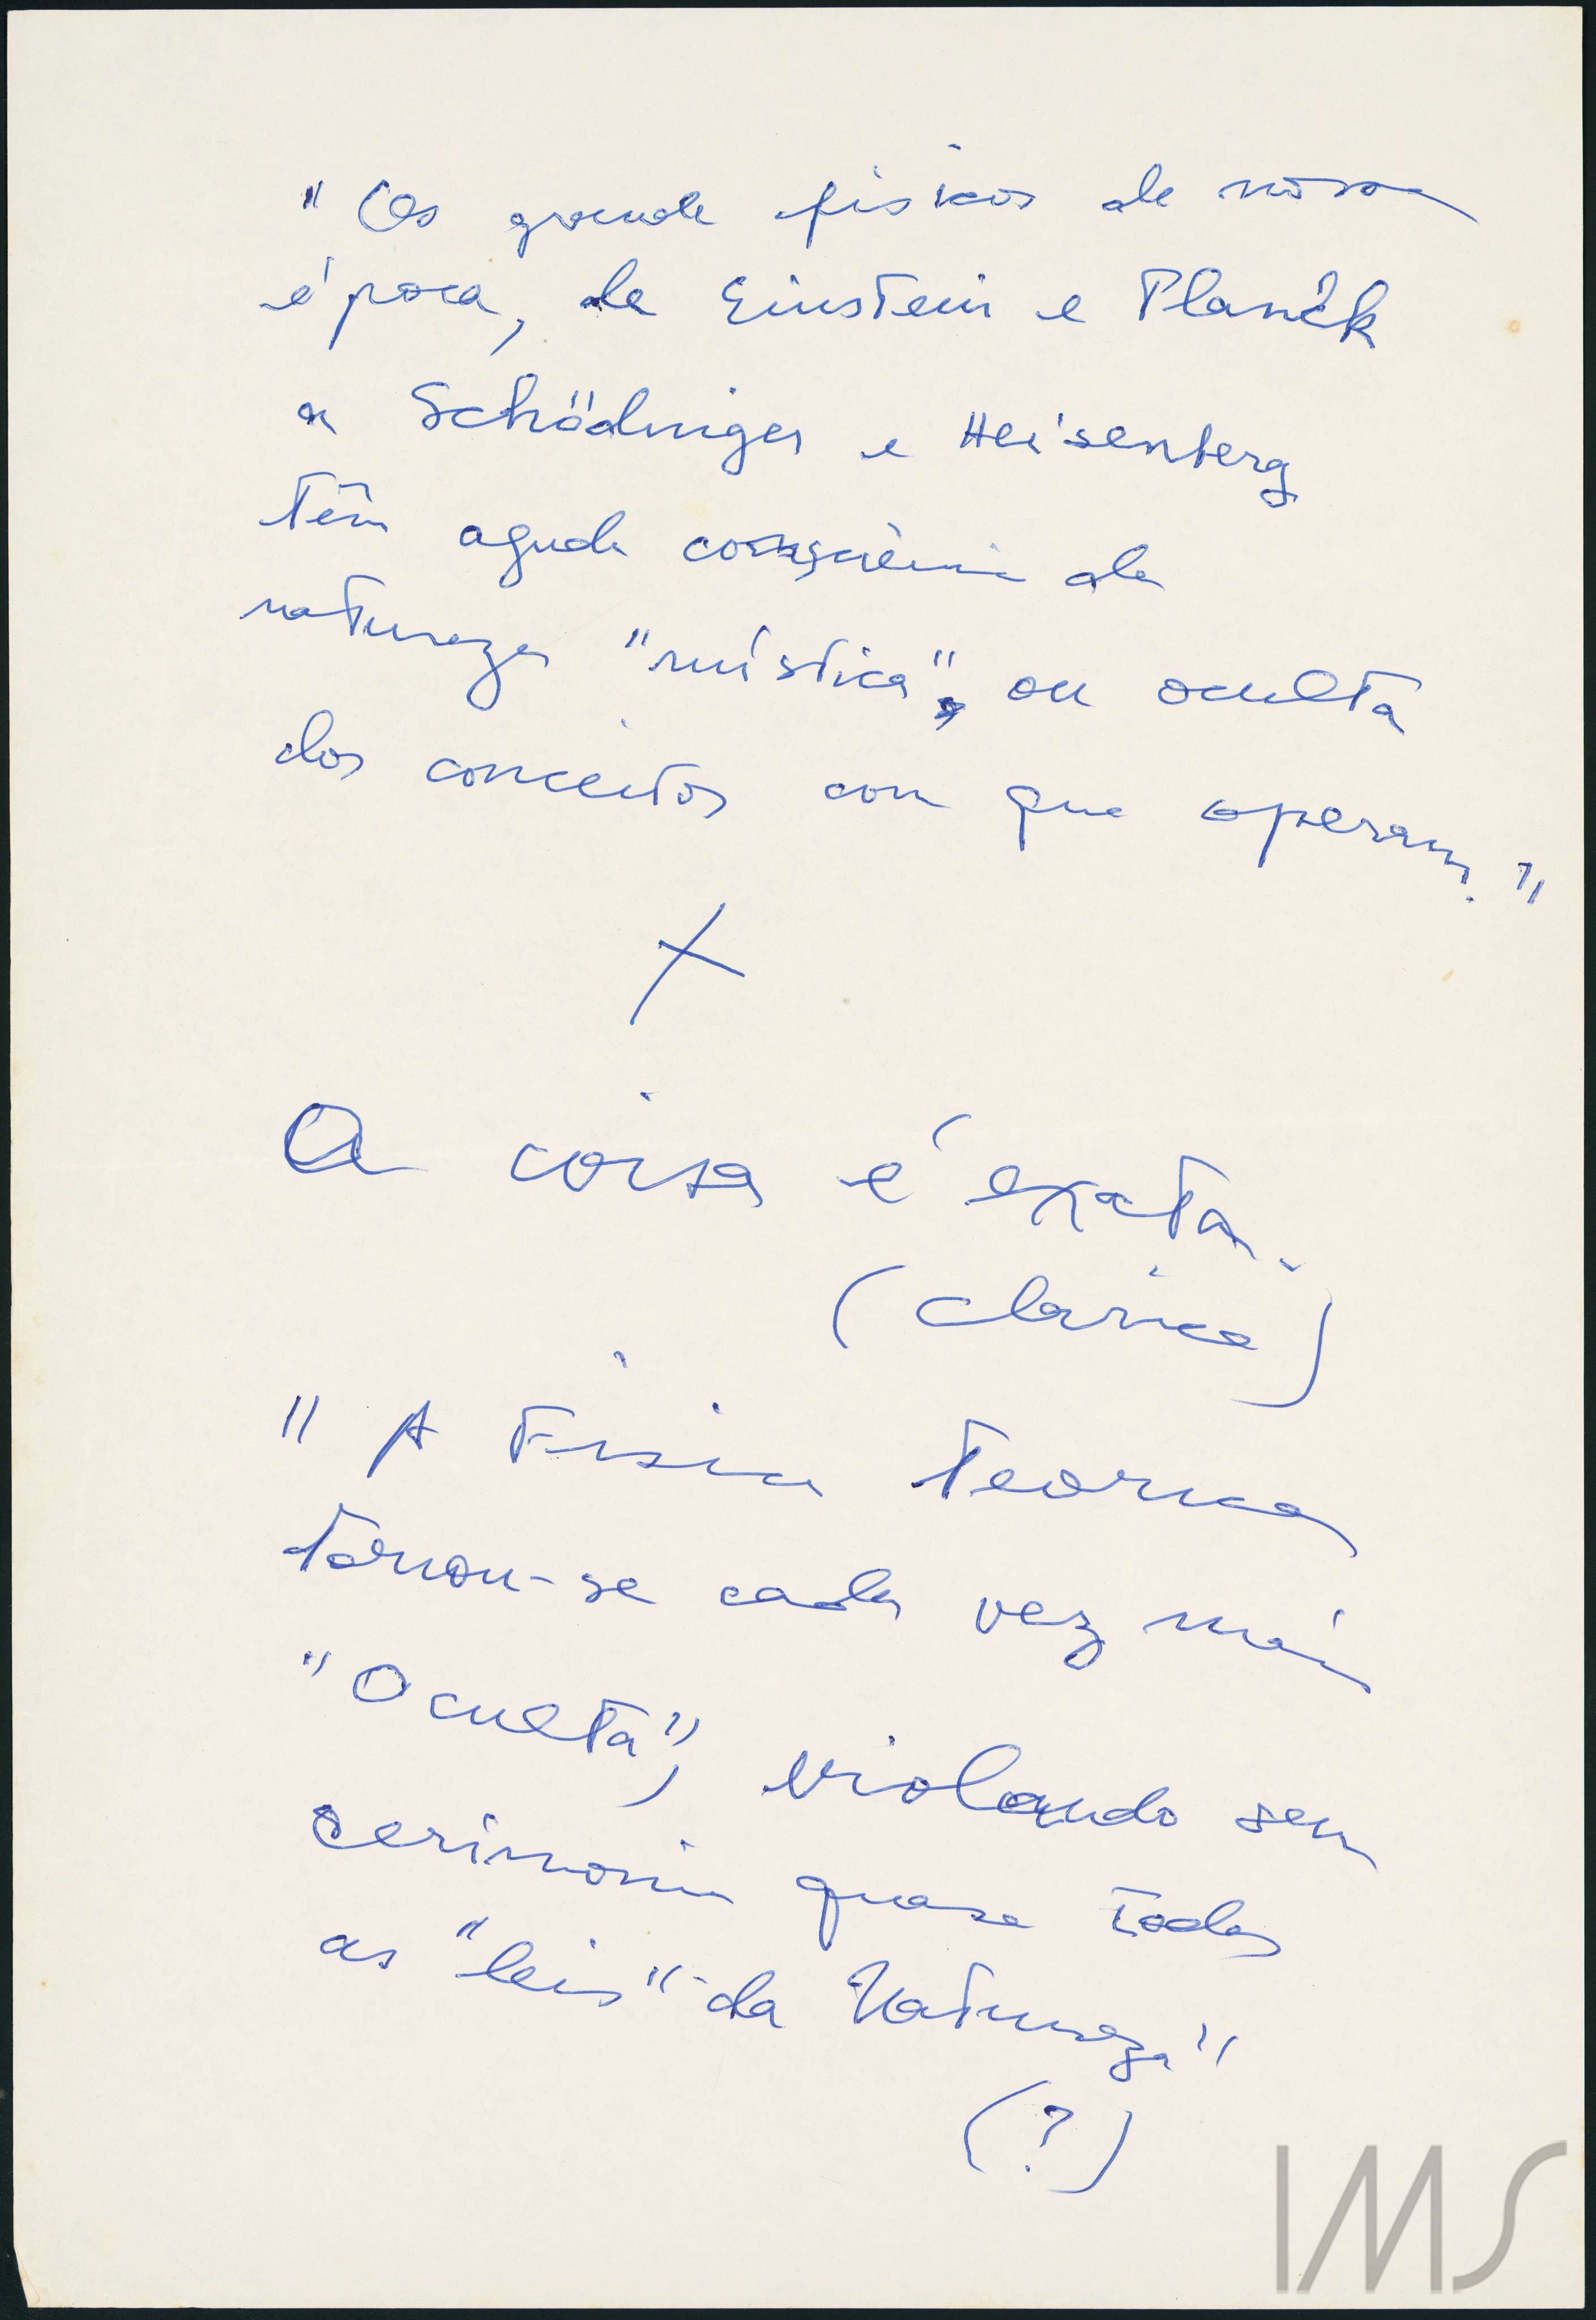 "Os grande físicos de nossa
época, de Einstein e Planck
a Schödinger e Heisenberg
têm aguda consciência da
natureza "mística", ou oculta
dos conceitos com que operam."
X
A coisa é exata.
(Clarice)
"A Física teorica
tornou-se cada vez mais
"Oculta", violando sem
cerimonia quase todas
as "leis" da Natureza"
(?)
IMS